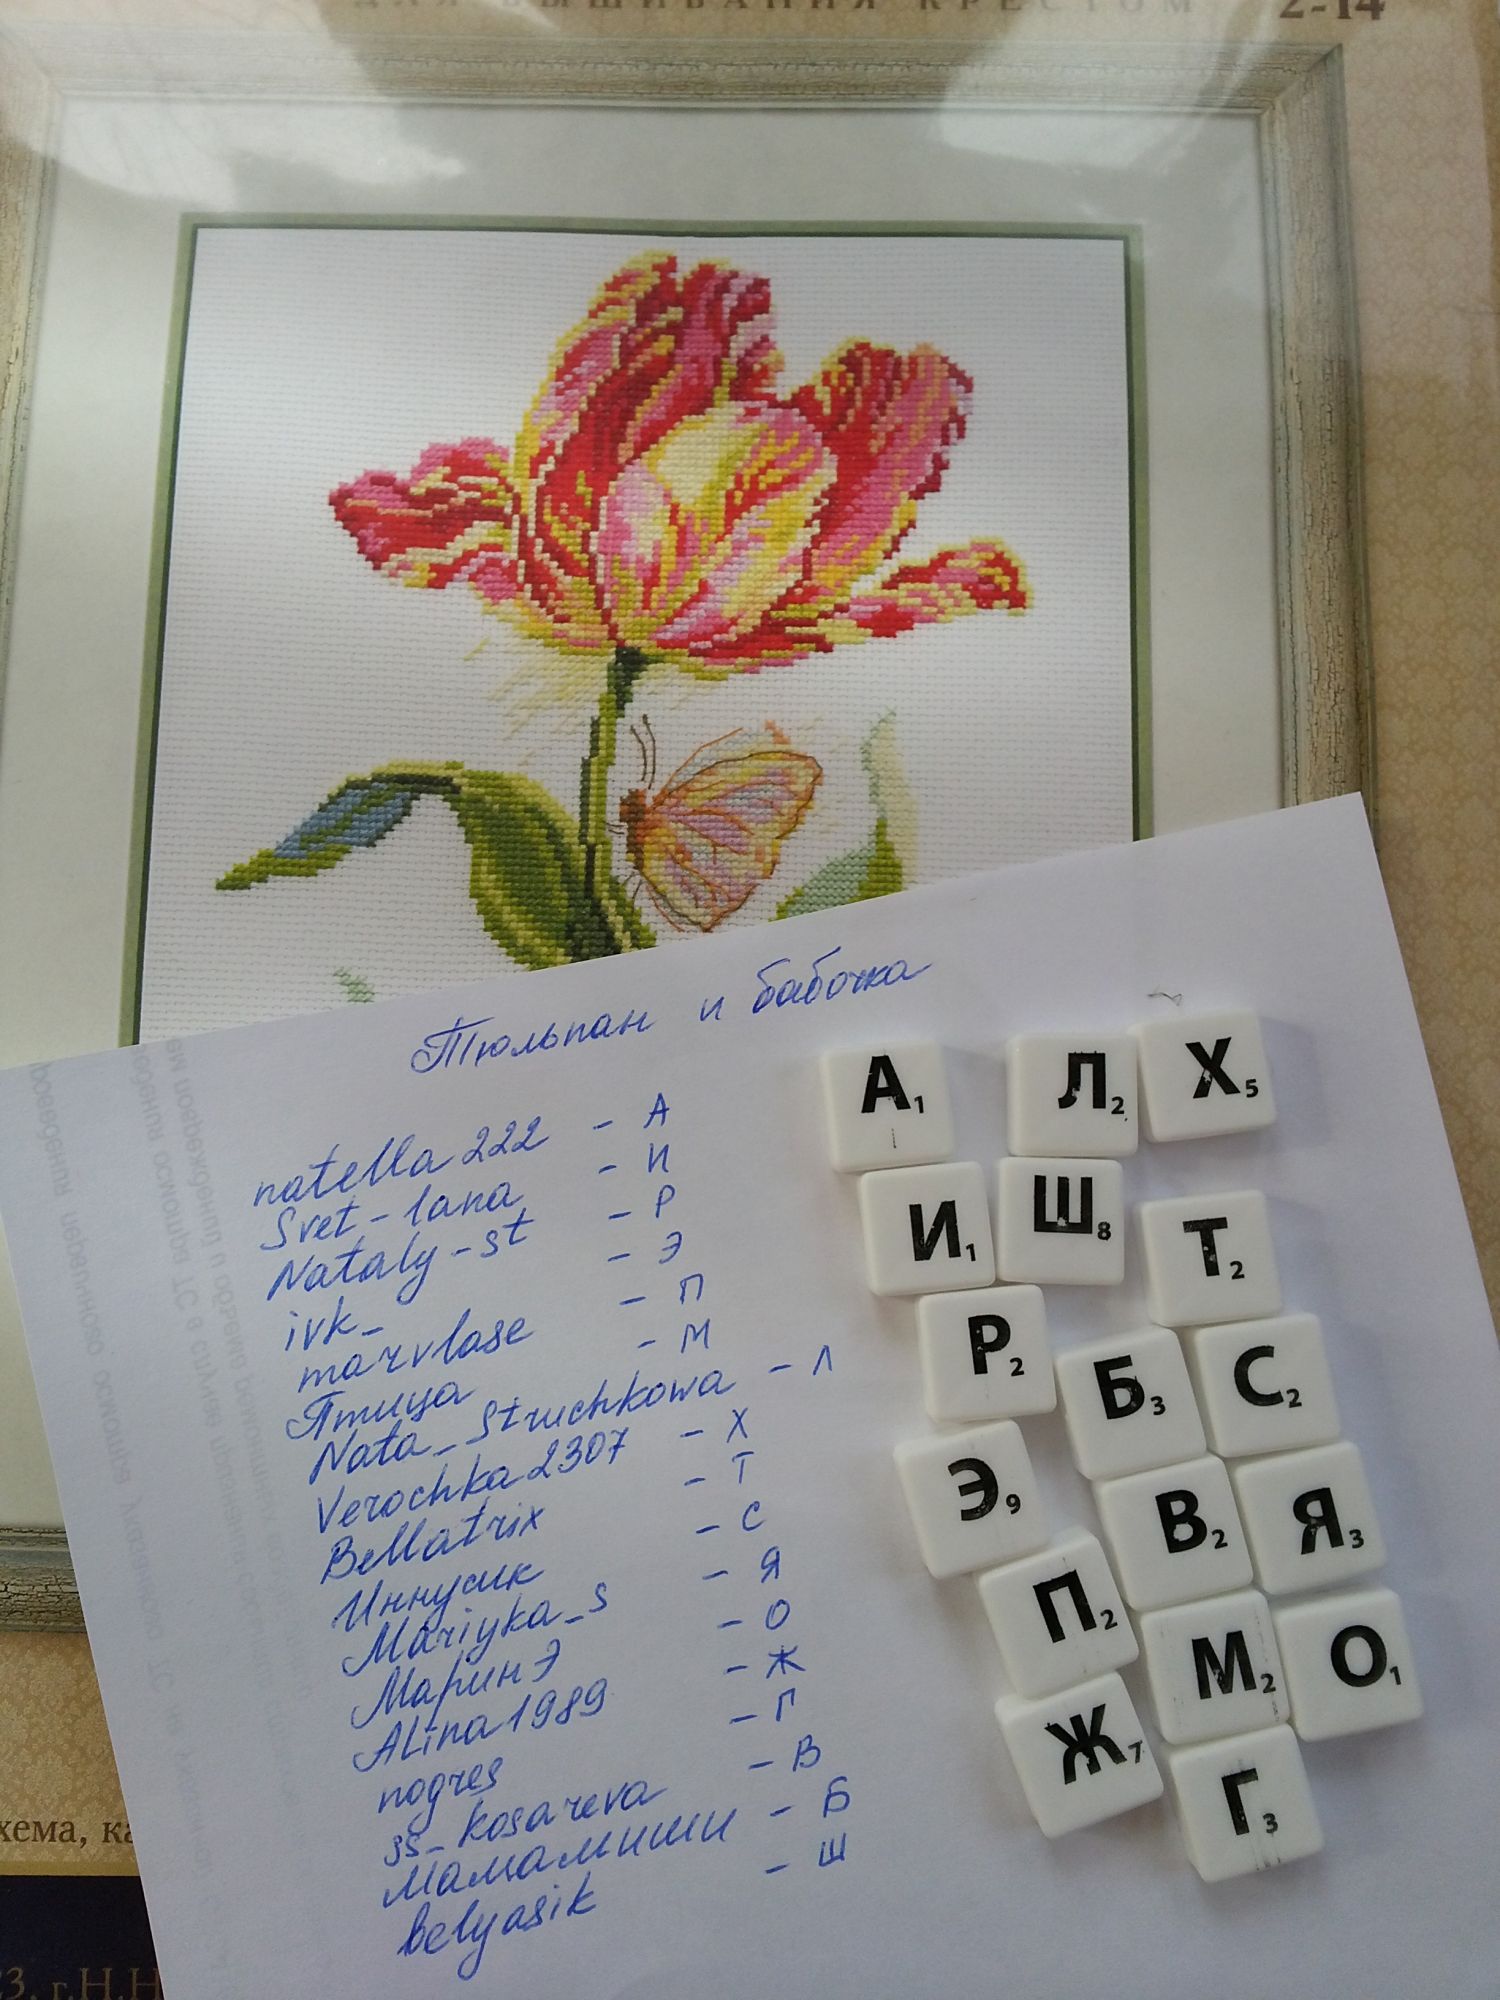 ДЛЯ ВЫШИВАНИЯ КРЕСТОМ 2-14
Тюльпан и бабочка
natella222 - А
Svet-lana - И
Nataly-st - Р
ivk_ - Э
marvlase - П
Птица - М
Nata_Struchkowa - Л
Verochka2307 - Х
Bellatrix - Т
Иннусик - С
Mariyka_s - Я
МаринЭ - О
ALina1989 - Ж
nogres - Г
ss_kosareva - В
Мамамиши - Б
belyasik - Ш
А1 Л2 Х5
И1 Ш8 Т2
Р2 Б3 С2
Э9 В2 Я3
П2 М2 О1
Ж7 Г3
хема, ка
23, г.Н.Н